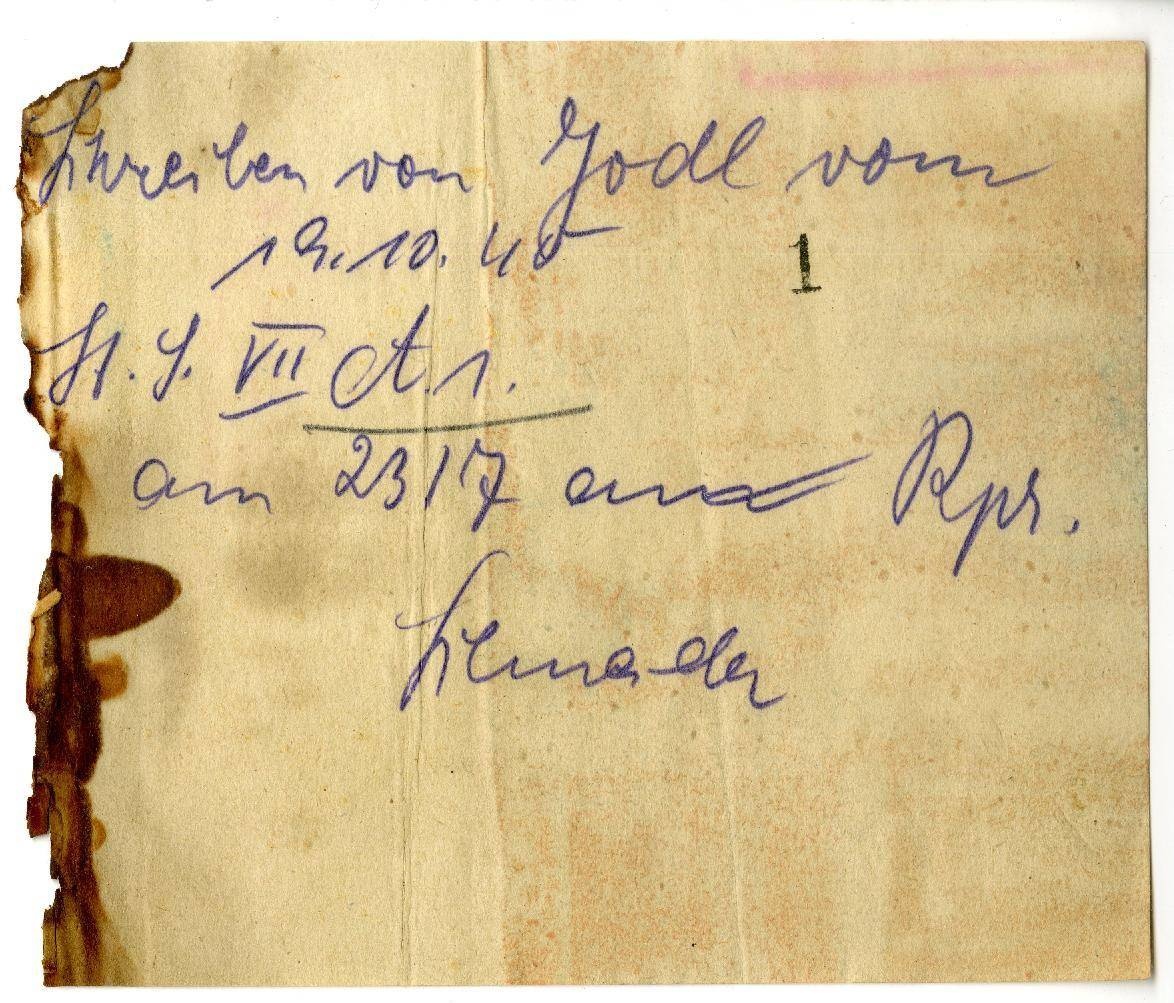 Schreiben von Jodl vom
19.10.45
1
St. S. VII A.1.
am 23/7 an Rpr.
Schmader